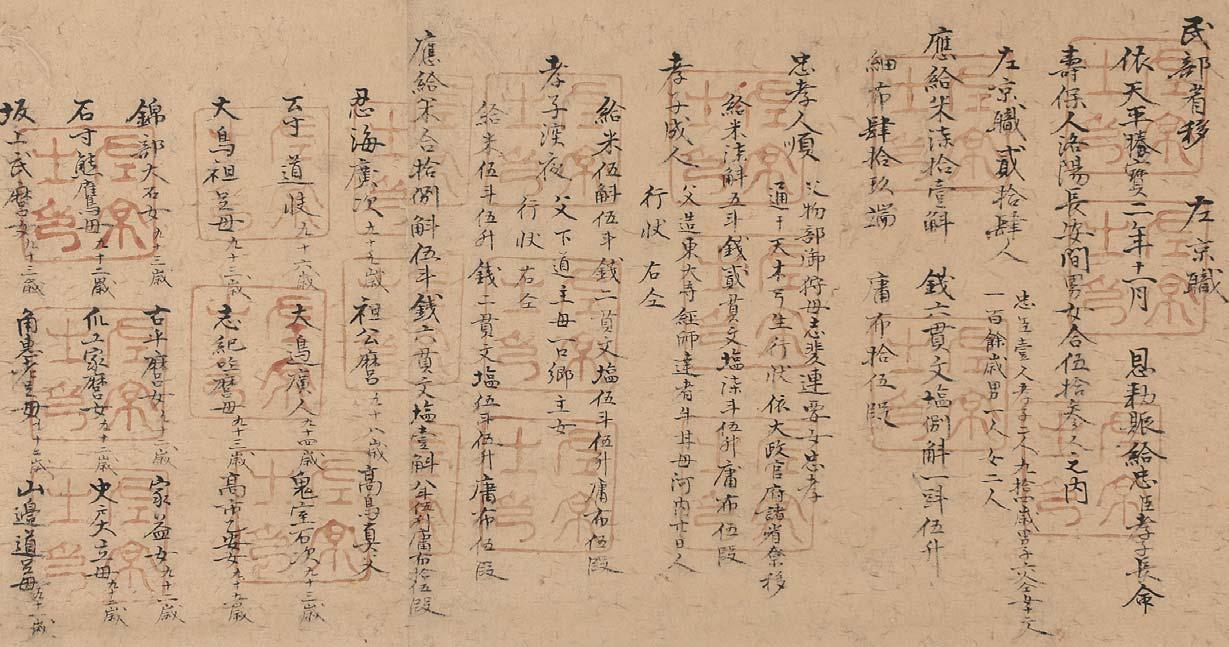 民部省移　左京職
依天平勝寶二年十一月　恩勅賑給忠臣孝子長命
壽保人洛陽長安間男女合伍拾参人之内
左京職貳拾肆人　忠臣壹人孝子二人九拾歳男子六人
一百餘歳男一人女二人
應給米柒拾壹斛　銭六貫文塩捌斛一斗伍升
細布肆拾玖端　庸布拾伍段
忠孝人順　父物部御狩母志斐連
通于天木
生行状依大政官府諸省祭移
給米柒斛五斗銭貳貫文塩柒斗伍升庸布伍段
孝子成人　父造東大寺経師達者牛
母河内廿日人
行状右仝
給米伍斛伍斗銭二貫文塩伍斗伍升庸布伍段
孝子深夜　父下道主母一口郷主女
行状右仝
給米伍斗伍升銭一貫文塩伍斗伍升庸布伍段
應給米合拾捌斛伍斗銭六貫文塩壹斛八斗伍升庸布拾伍段
忍海廣次　祖公麿　高鳥真父
道岐九十六歳　大鳥廣人九十四歳　鬼室石次九十三歳
大鳥祖足母九十三歳　志紀 麿母九十三歳　高市
錦部大石女九十三歳　古斗麿女　家益女
石寸熊鷹母九十二歳　爪工家麿女九十二歳　史戸大立母九十二歳
坂上武麿女九十三歳　角恵 母　山邊道足母九十一歳